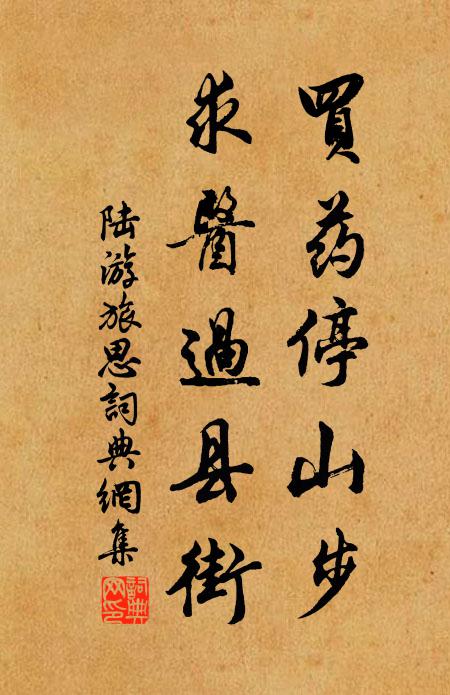 買药停山步
求醫過县街
陆游旅思詞典網集
詞典网印